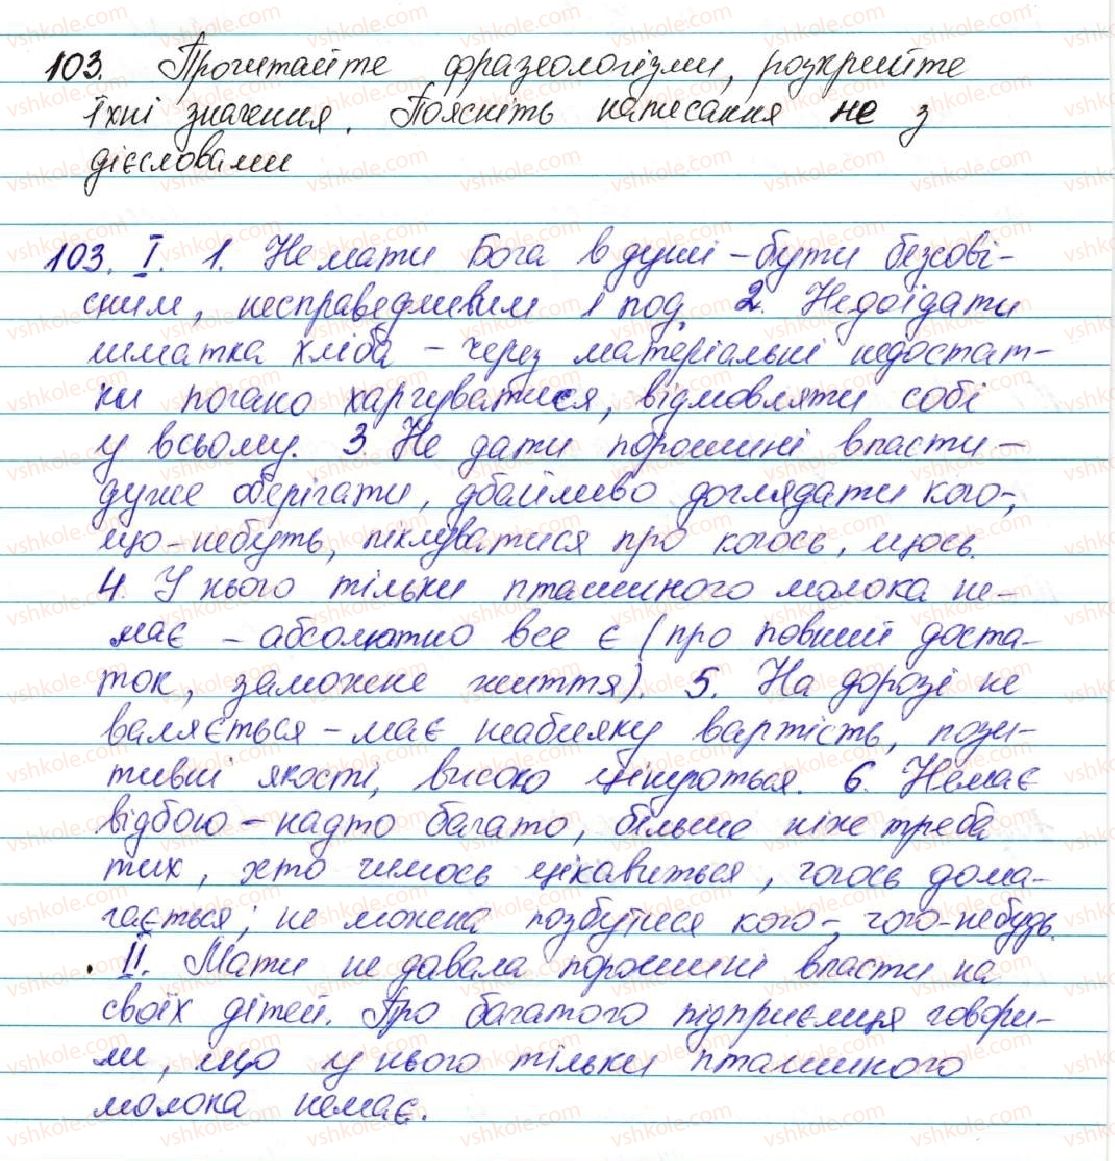 103. Прочитайте фразеологізми, розкрийте
їхні значення. Поясніть написання не з
дієсловами
103. I. 1. Не мати Бога в душі – бути безсові-
сним, несправедливим і под. 2. Недоїдати
шматка хліба – через матеріальні недостат-
ки погано харчуватися, відмовляти собі
у всьому. 3. Не дати порошині впасти –
дуже оберігати, дбайливо доглядати кого-,
що-небудь, піклуватися про когось, щось.
4. У нього тільки пташиного молока не-
має – абсолютно все є (про повний доста-
ток, заможне життя). 5. На дорозі не
валяється – має неабияку вартість, пози-
тивні якості, високо цінується. 6. Немає
відбою – надто багато, більше ніж треба
тих, хто чимось цікавиться, чогось дома-
гається; не можна позбутися кого-, чого-небудь.
II. Мати не давала порошині впасти на
своїх дітей. Про багатого підприємця говори-
ли, що у нього тільки пташиного
молока немає.